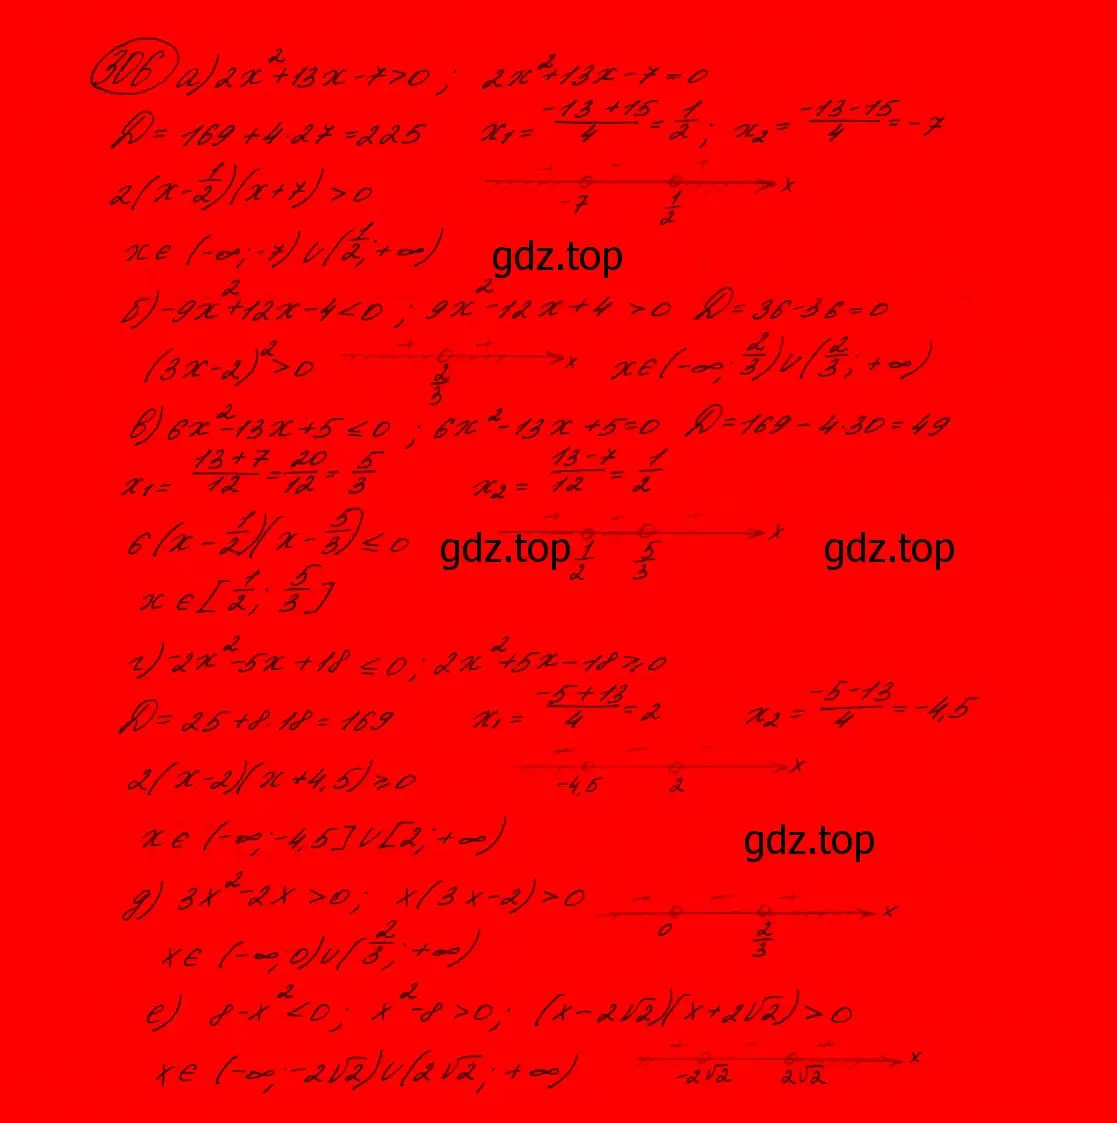 306 а) 2x²+13x-7>0 ; 2x²+13x-7=0
D=169+4·27=225 x₁=(-13+15)/4=1/2; x₂=(-13-15)/4=-7
2(x-1/2)(x+7)>0 + - + -7 1/2 x
x∈(-∞;-7)∪(1/2;+∞) gdz.top
б) -9x²+12x-4<0 ; 9x²-12x+4>0 D=36-36=0
(3x-2)²>0 + + 2/3 x x∈(-∞;2/3)∪(2/3;+∞)
в) 6x²-13x+5≤0 ; 6x²-13x+5=0 D=169-4·30=49
x₁=(13+7)/12=20/12=5/3 x₂=(13-7)/12=1/2
6(x-1/2)(x-5/3)≤0 gdz.top 1/2 5/3 x gdz.top
x∈[1/2; 5/3]
г) -2x²-5x+18≤0; 2x²+5x-18≥0
D=25+8·18=169 x₁=(-5+13)/4=2 x₂=(-5-13)/4=-4,5
2(x-2)(x+4,5)≥0 -4,5 2 x
x∈(-∞;-4,5]∪[2;+∞) gdz.top
д) 3x²-2x>0; x(3x-2)>0 0 2/3 x
x∈(-∞;0)∪(2/3;+∞)
е) 8-x²<0; x²-8>0; (x-2√2)(x+2√2)>0
x∈(-∞;-2√2)∪(2√2;+∞) + - + -2√2 2√2 x